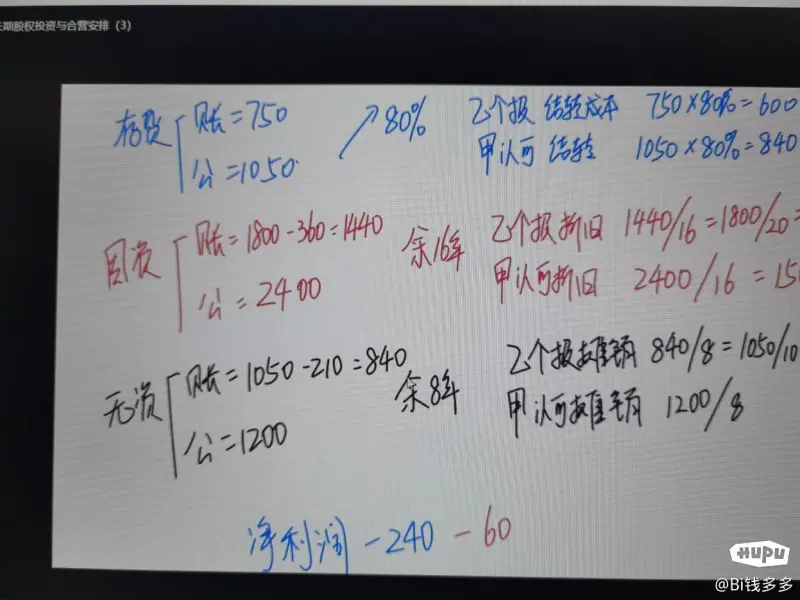 长期股权投资与合营安排（3）
存货 账=750 ↗80% 乙个报 结转成本 750×80%=600
公=1050 甲认可 结转 1050×80%=840
固资 账=1800-360=1440 余16年 乙个报折旧 1440/16=1800/20=
公=2400 甲认可折旧 2400/16=15
无资 账=1050-210=840 余8年 乙个报摊销 840/8=1050/10
公=1200 甲认可摊销 1200/8
净利润-240-60
HUPU
@Bi钱多多